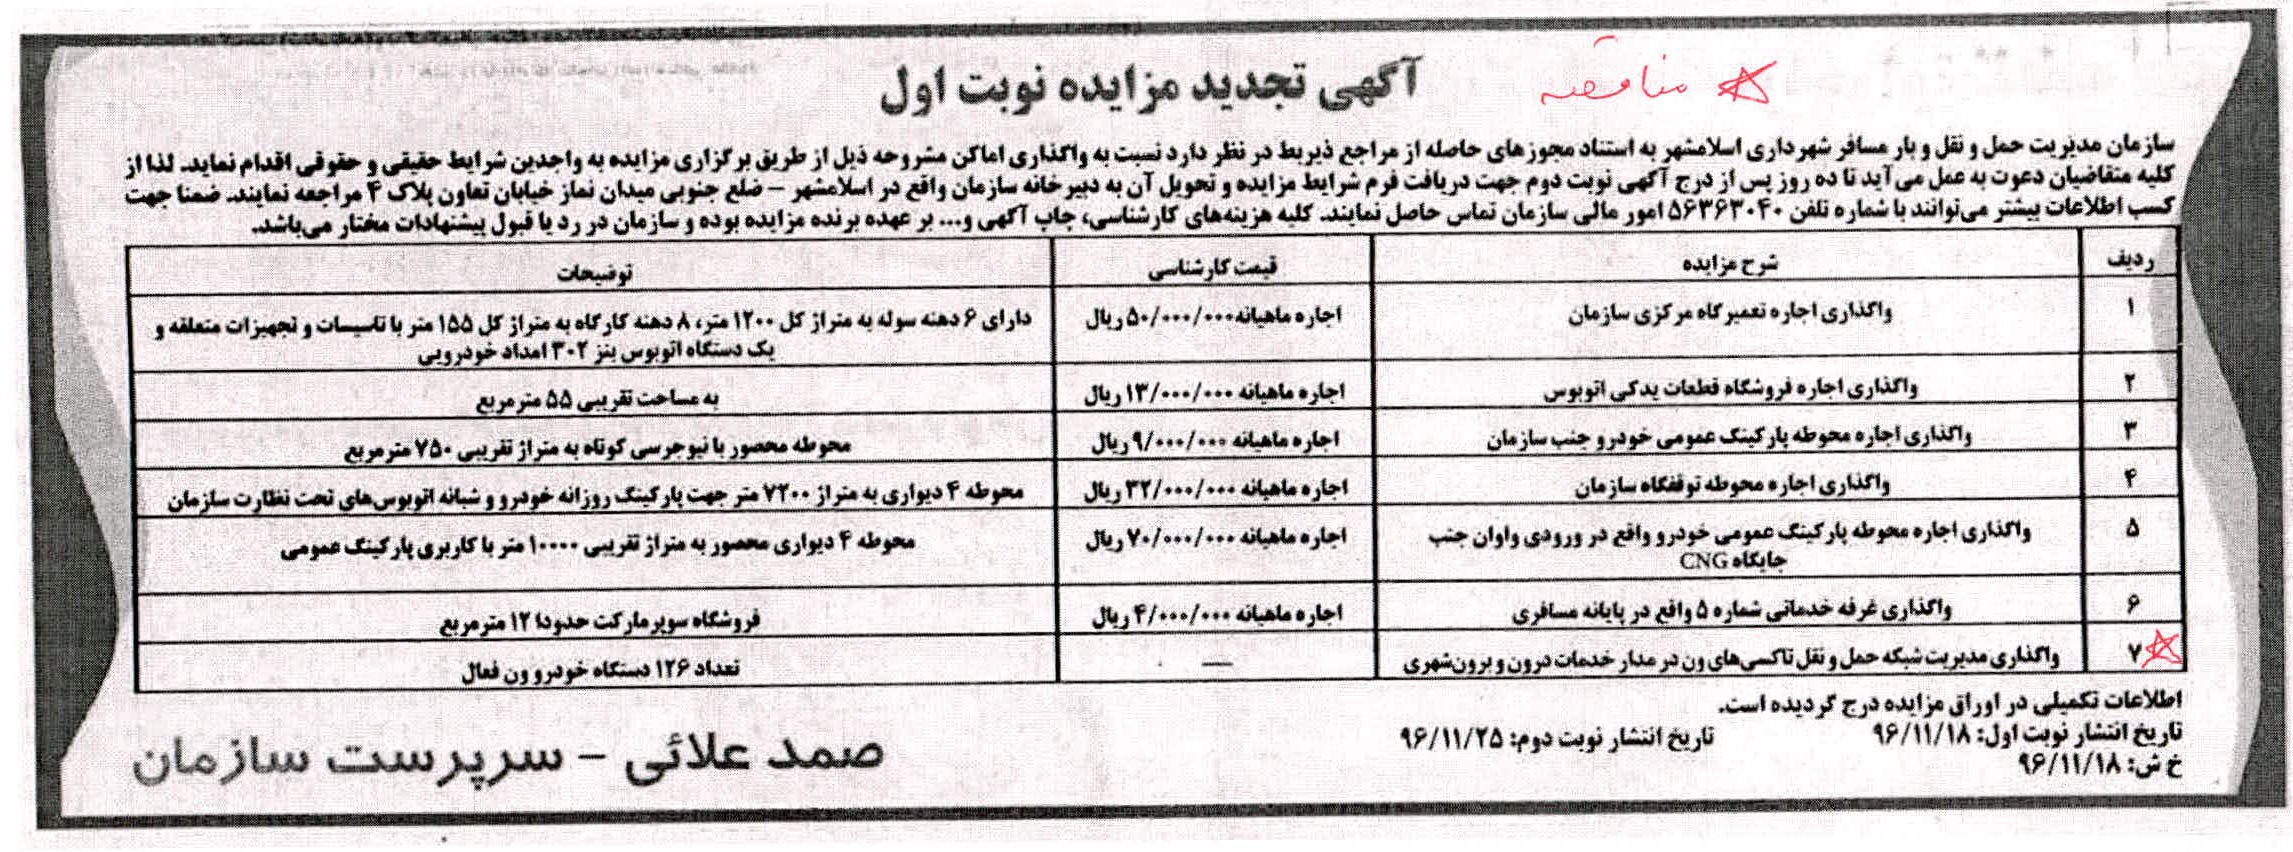 مناقصه
آگهی تجدید مزایده نوبت اول
سازمان مدیریت حمل و نقل و بار مسافر شهرداری اسلامشهر به استناد مجوزهای حاصله از مراجع ذیربط در نظر دارد نسبت به واگذاری اماکن مشروحه ذیل از طریق برگزاری مزایده به واجدین شرایط حقیقی و حقوقی اقدام نماید. لذا از
کلیه متقاضیان دعوت به عمل می‌آید تا ده روز پس از درج آگهی نوبت دوم جهت دریافت فرم شرایط مزایده و تحویل آن به دبیرخانه سازمان واقع در اسلامشهر – ضلع جنوبی میدان نماز خیابان تعاون پلاک ۴ مراجعه نمایند. ضمنا جهت
کسب اطلاعات بیشتر می‌توانند با شماره تلفن ۵۶۳۶۳۰۴۰ امور مالی سازمان تماس حاصل نمایند. کلیه هزینه‌های کارشناسی، چاپ آگهی و... بر عهده برنده مزایده بوده و سازمان در رد یا قبول پیشنهادات مختار می‌باشد.
ردیف شرح مزایده قیمت کارشناسی توضیحات
۱ واگذاری اجاره تعمیرگاه مرکزی سازمان اجاره ماهیانه ۵۰/۰۰۰/۰۰۰ ریال دارای ۶ دهنه سوله به متراژ کل ۱۲۰۰ متر، ۸ دهنه کارگاه به متراژ کل ۱۵۵ متر با تاسیسات و تجهیزات متعلقه و
یک دستگاه اتوبوس بنز ۳۰۲ امداد خودرویی
۲ واگذاری اجاره فروشگاه قطعات یدکی اتوبوس اجاره ماهیانه ۱۳/۰۰۰/۰۰۰ ریال به مساحت تقریبی ۵۵ مترمربع
۳ واگذاری اجاره محوطه پارکینگ عمومی خودرو جنب سازمان اجاره ماهیانه ۹/۰۰۰/۰۰۰ ریال محوطه محصور با نیوجرسی کوتاه به متراژ تقریبی ۷۵۰ مترمربع
۴ واگذاری اجاره محوطه توقفگاه سازمان اجاره ماهیانه ۳۲/۰۰۰/۰۰۰ ریال محوطه ۴ دیواری به متراژ ۷۲۰۰ متر جهت پارکینگ روزانه خودرو و شبانه اتوبوس‌های تحت نظارت سازمان
۵ واگذاری اجاره محوطه پارکینگ عمومی خودرو واقع در ورودی واوان جنب اجاره ماهیانه ۷۰/۰۰۰/۰۰۰ ریال محوطه ۴ دیواری محصور به متراژ تقریبی ۱۰۰۰۰ متر با کاربری پارکینگ عمومی
جایگاه CNG
۶ واگذاری غرفه خدماتی شماره ۵ واقع در پایانه مسافری اجاره ماهیانه ۴/۰۰۰/۰۰۰ ریال فروشگاه سوپرمارکت حدودا ۱۲ مترمربع
۷ واگذاری مدیریت شبکه حمل و نقل تاکسی‌های ون در مدار خدمات درون و برون‌شهری — تعداد ۱۲۶ دستگاه خودرو ون فعال
اطلاعات تکمیلی در اوراق مزایده درج گردیده است.
تاریخ انتشار نوبت اول: ۹۶/۱۱/۱۸ تاریخ انتشار نوبت دوم: ۹۶/۱۱/۲۵
خ ش: ۹۶/۱۱/۱۸
صمد علائی – سرپرست سازمان